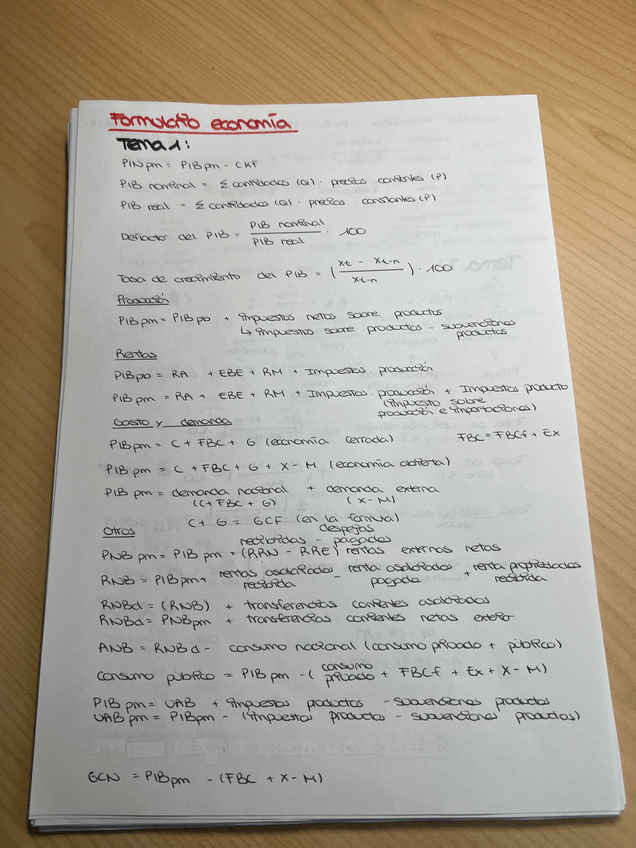 Formulario economía
Tema 1:
PIN pm = PIB pm - CKF
PIB nominal = Σ cantidades (Q) · precios corrientes (P)
PIB real = Σ cantidades (Q) · precios constantes (P)
Deflactor del PIB = PIB nominal / PIB real · 100
Tasa de crecimiento del PIB = ( xt - xt-n / xt-n ) · 100
Producción
PIB pm = PIB pb + impuestos netos sobre productos
↳ impuestos sobre productos - subvenciones productos
Rentas
PIB pb = RA + EBE + RM + Impuestos. producción
PIB pm = RA + EBE + RM + Impuestos. producción + Impuestos producto
(impuesto sobre producción e importaciones)
Gasto y demanda
PIB pm = C + FBC + G (economía cerrada) FBC = FBCf + Ex
PIB pm = C + FBC + G + X - M (economía abierta)
PIB pm = demanda nacional + demanda externa
(C + FBC + G) (X - M)
C + G = GCF (en la formula)
Otros
despejas
recibidas - pagadas
PNB pm = PIB pm + (RRN - RRE) rentas externas netas
RNB = PIB pm + rentas asalariadas recibida - renta asalariadas pagada + renta propiedades recibida
RNBd = (RNB) + transferencias corrientes asalariadas
RNBd = PNB pm + transferencias corrientes netas exterior
ANB = RNBd - consumo nacional (consumo privado + público)
consumo público = PIB pm - ( consumo privado + FBCf + Ex + X - M)
PIB pm = VAB + impuestos productos - subvenciones productos
VAB pm = PIB pm - (impuestos productos - subvenciones productos)
GCN = PIB pm - (FBC + X - M)